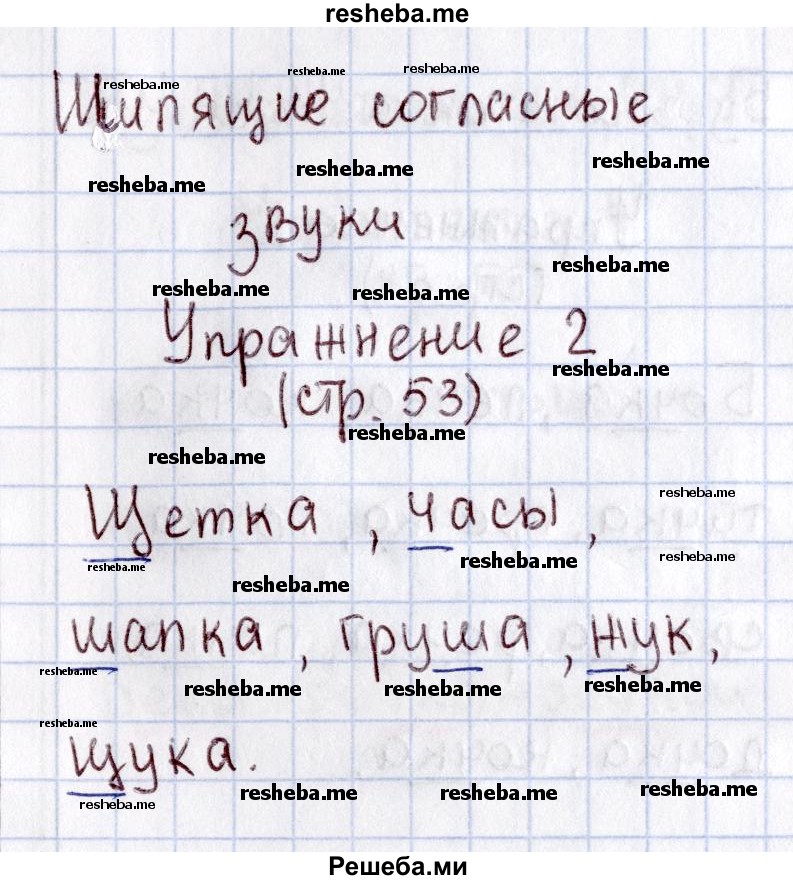 resheba.me
resheba.me
resheba.me
resheba.me
Шипящие согласные
resheba.me
resheba.me
resheba.me
звуки
resheba.me
resheba.me
resheba.me
Упражнение 2
resheba.me
(стр. 53)
resheba.me
resheba.me
resheba.me
Щетка, часы,
resheba.me
resheba.me
resheba.me
resheba.me
шапка, груша, жук,
resheba.me
resheba.me
resheba.me
resheba.me
resheba.me
щука.
resheba.me
resheba.me
resheba.me
resheba.me
Решеба.ми